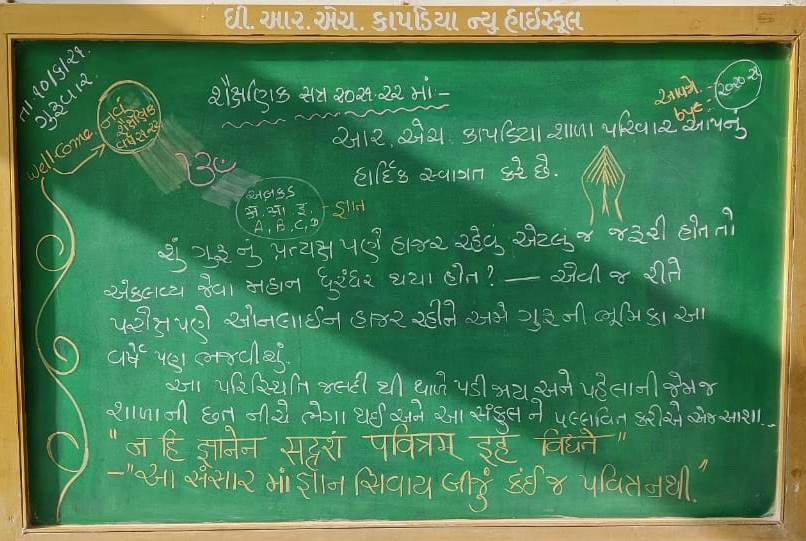 ધી. આર. એચ. કાપડિયા ન્યુ હાઇસ્કૂલ
તા ૧૦/૬/૨૧.
ગુરુવાર.
Wellcome
નવું
શૈક્ષણિક
વર્ષ ૨૧-૨૨
શૈક્ષણિક સત્ર ૨૦૨૧-૨૨ માં-
આવજો. -
bye:
૨૦૨૦ ૨૧
આર. એચ. કાપડિયા શાળા પરિવાર આપનું
હાર્દિક સ્વાગત કરે છે.
ૐ
અબકડ
अ. आ. इ.
A, B, C, D
- જ્ઞાન
શું ગુરુ નું પ્રત્યક્ષ પણે હાજર રહેવું એટલું જ જરૂરી હોત તો
એકલવ્ય જેવા મહાન ધુરંધર થયા હોત? — એવી જ રીતે
પરોક્ષ પણે ઓનલાઈન હાજર રહીને અમે ગુરૂ ની ભૂમિકા આ
વર્ષે પણ ભજવીશું.
આ પરિસ્થિતિ જલદી થી થાળે પડી જાય અને પહેલાની જેમ જ
શાળા ની છત નીચે ભેગા થઈ અને આ સંકુલ ને પલ્લવિત કરીએ એજ આશા..
"न हि ज्ञानेन सदृशं पवित्रम् इह विद्यते"
-"આ સંસાર માં જ્ઞાન સિવાય બીજું કંઈ જ પવિત્ર નથી."